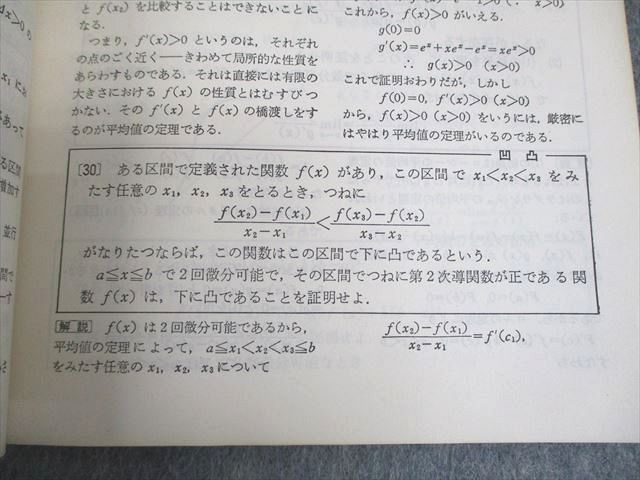 と f(x₂) を比較することはできないことに
なる.
つまり, f′(x)>0 というのは, それぞれ
の点のごく近く──きわめて局所的な性質を
あらわすものである. それは直接には有限の
大きさにおける f(x) の性質とはむすびつ
かない. その f′(x) と f(x) の橋渡しをす
るのが平均値の定理である.
これから, f(x)>0 がいえる.
g(0)=0
g′(x)=eˣ+xeˣ−eˣ=xeˣ>0
∴ g(x)>0 (x>0)
これで証明おわりだが, しかし
f(0)=0, f′(x)>0 (x>0)
から, f(x)>0 (x>0) をいうには, 厳密に
はやはり平均値の定理がいるのである.
凹 凸
〔30〕 ある区間で定義された関数 f(x) があり, この区間で x₁<x₂<x₃ をみ
たす任意の x₁, x₂, x₃ をとるとき, つねに
f(x₂)−f(x₁)/x₂−x₁ < f(x₃)−f(x₂)/x₃−x₂
がなりたつならば, この関数はこの区間で下に凸であるという.
a≦x≦b で2回微分可能で, その区間でつねに第2次導関数が正である関
数 f(x) は, 下に凸であることを証明せよ.
解 説 f(x) は2回微分可能であるから,
平均値の定理によって, a≦x₁<x₂<x₃≦b
をみたす任意の x₁, x₂, x₃ について
f(x₂)−f(x₁)/x₂−x₁ =f′(c₁),